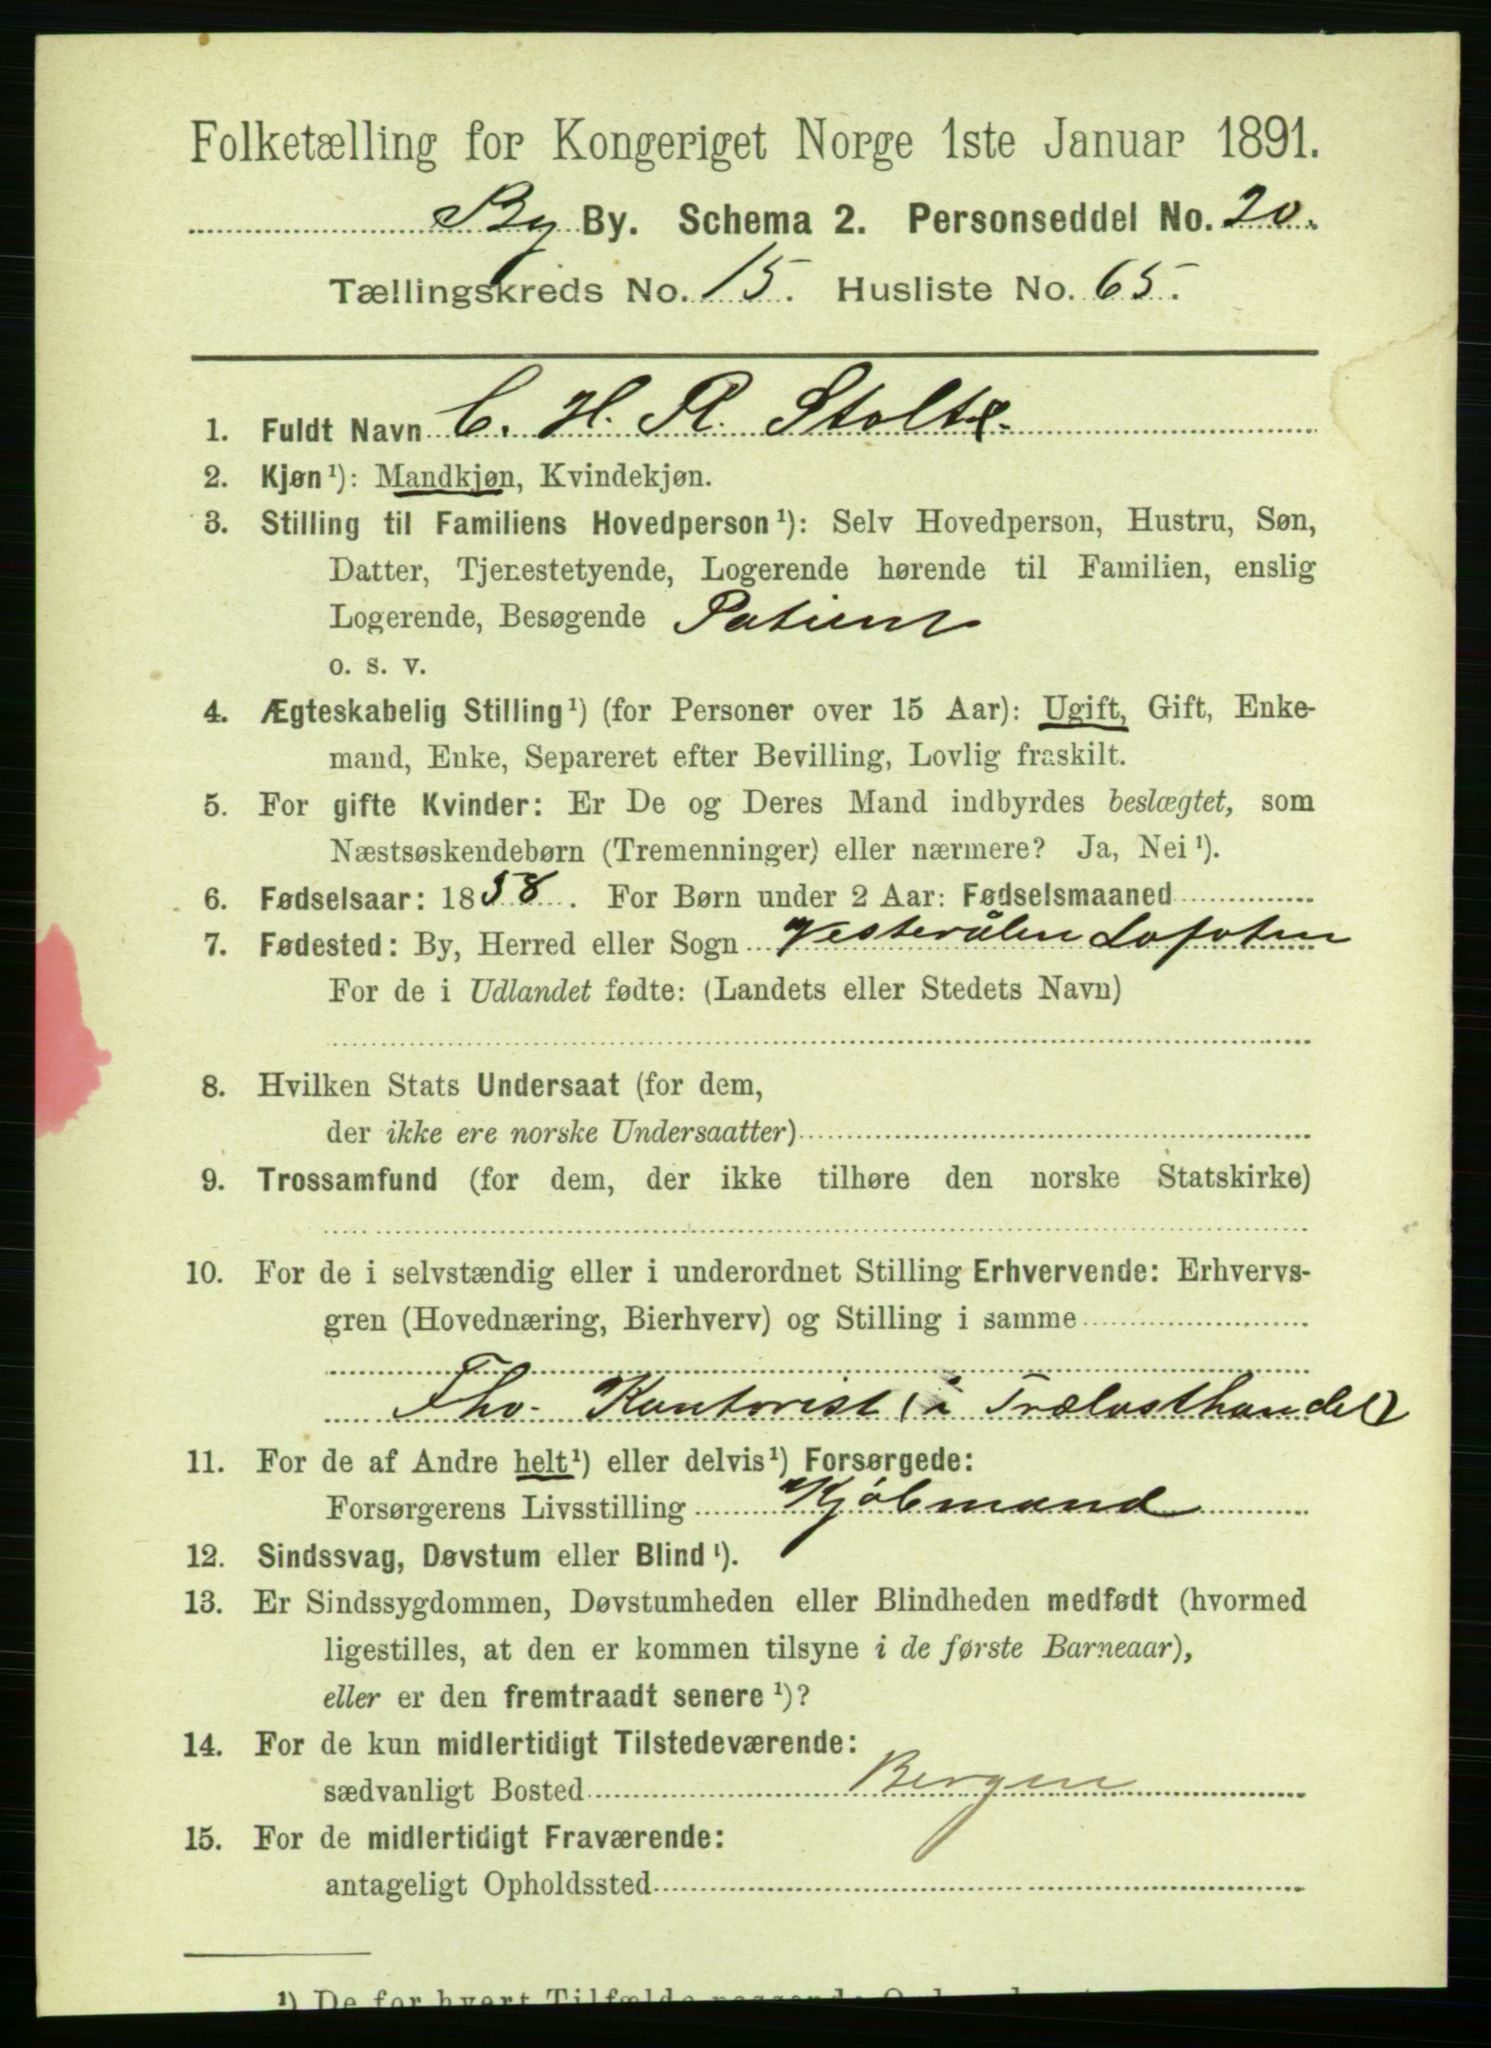 Folketælling for Kongeriget Norge 1ste Januar 1891.
By By. Schema 2. Personseddel No. 20.
Tællingskreds No. 15. Husliste No. 65.
1. Fuldt Navn C. H. R. Stolte.
2. Kjøn¹): Mandkjøn, Kvindekjøn.
3. Stilling til Familiens Hovedperson¹): Selv Hovedperson, Hustru, Søn,
Datter, Tjenestetyende, Logerende hørende til Familien, enslig
Logerende, Besøgende Patient
o. s. v.
4. Ægteskabelig Stilling¹) (for Personer over 15 Aar): Ugift, Gift, Enke-
mand, Enke, Separeret efter Bevilling, Lovlig fraskilt.
5. For gifte Kvinder: Er De og Deres Mand indbyrdes beslægtet, som
Næstsøskendebørn (Tremenninger) eller nærmere? Ja, Nei¹).
6. Fødselsaar: 1858. For Børn under 2 Aar: Fødselsmaaned
7. Fødested: By, Herred eller Sogn Vesterålen Lofoten
For de i Udlandet fødte: (Landets eller Stedets Navn)
8. Hvilken Stats Undersaat (for dem,
der ikke ere norske Undersaatter)
9. Trossamfund (for dem, der ikke tilhøre den norske Statskirke)
10. For de i selvstændig eller i underordnet Stilling Erhvervende: Erhvervs-
gren (Hovednæring, Bierhverv) og Stilling i samme
Fhv. Kontorist (i Trælasthandel)
11. For de af Andre helt¹) eller delvis¹) Forsørgede:
Forsørgerens Livsstilling Kjöbmand
12. Sindssvag, Døvstum eller Blind¹).
13. Er Sindssygdommen, Døvstumheden eller Blindheden medfødt (hvormed
ligestilles, at den er kommen tilsyne i de første Barneaar),
eller er den fremtraadt senere¹)?
14. For de kun midlertidigt Tilstedeværende:
sædvanligt Bosted Bergen
15. For de midlertidigt Fraværende:
antageligt Opholdssted
¹) De for hvert Tilfælde passende